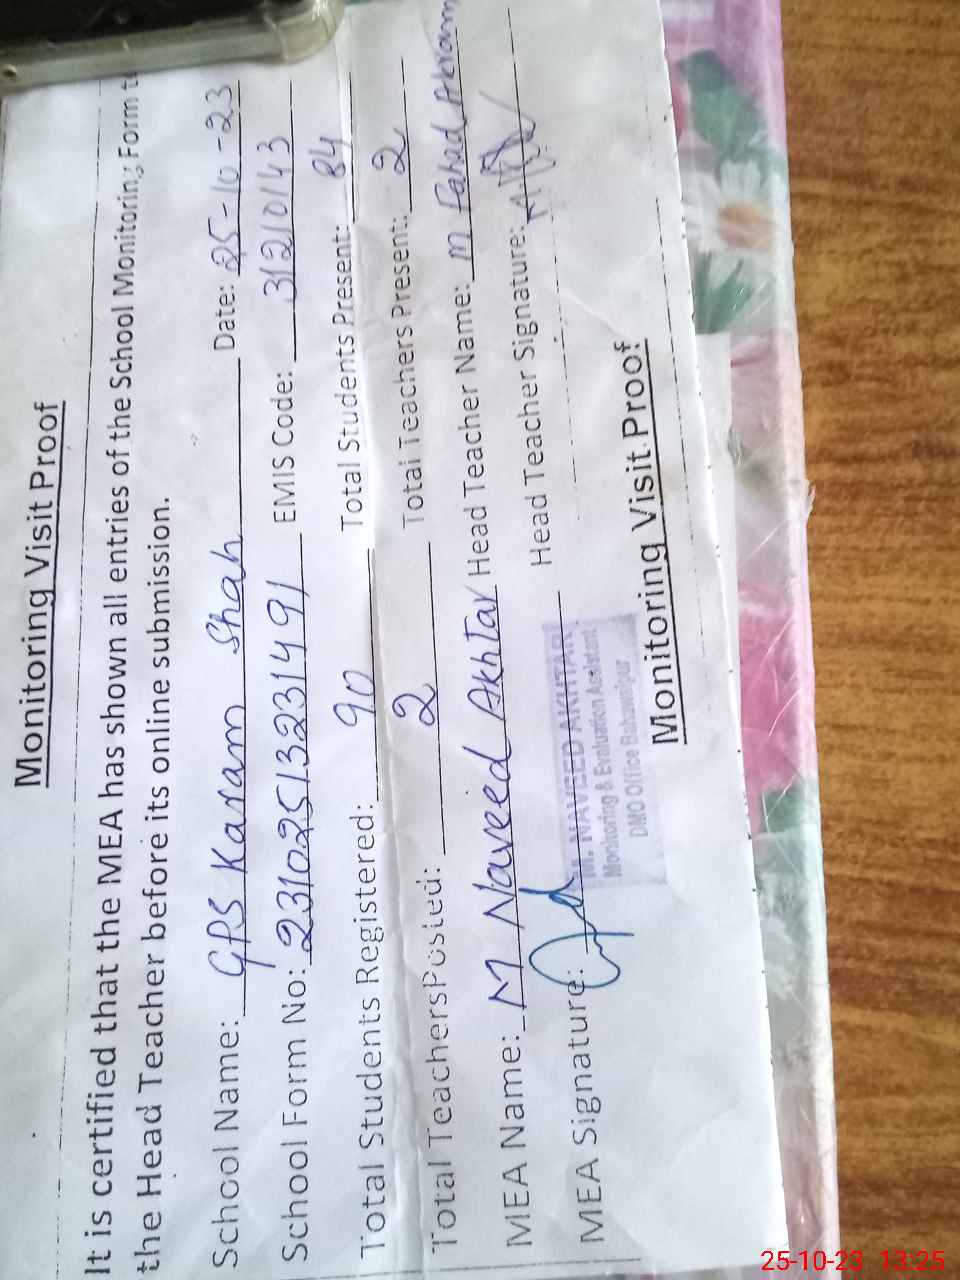 Monitoring Visit Proof
It is certified that the MEA has shown all entries of the School Monitoring Form to
the Head Teacher before its online submission.
School Name: GPS Karam Shah Date: 25-10-23
School Form No: 2310251323314991 EMIS Code: 31210143
Total Students Registered: 90 Total Students Present: 84
Total Teachers Posted: 2 Total Teachers Present: 2
MEA Name: M Naveed Akhtar Head Teacher Name: M Fahad Akram
MEA Signature: Head Teacher Signature:
M. NAVEED AKHTAR
Monitoring & Evaluation Assistant
DMO Office Bahawalpur
Monitoring Visit Proof
25-10-23 13:25